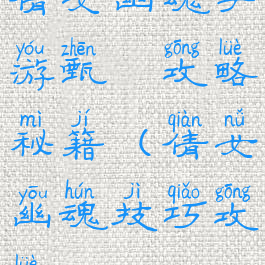 yóu zhēn gōng lüè
游甄 攻略
mì jí qiàn nǚ
秘籍（倩女
yōu hún jì qiǎo gōng
幽魂技巧攻
lüè